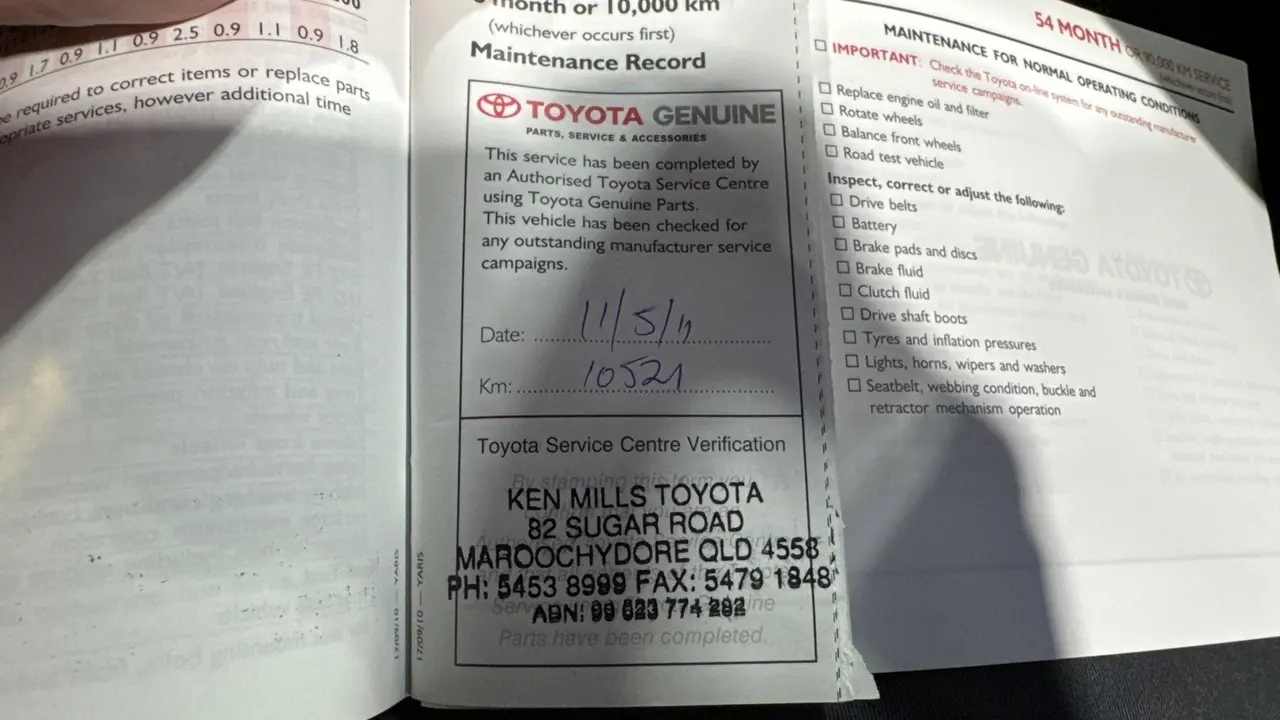 0.9 1.7 0.9 1.1 0.9 2.5 0.9 1.1 0.9 1.8
required to correct items or replace parts
services, however additional time
month or 10,000 km
(whichever occurs first)
Maintenance Record
TOYOTA GENUINE
PARTS, SERVICE & ACCESSORIES
This service has been completed by
an Authorised Toyota Service Centre
using Toyota Genuine Parts.
This vehicle has been checked for
any outstanding manufacturer service
campaigns.
Date: 11/5/11
Km: 10521
Toyota Service Centre Verification
By stamping this form you
KEN MILLS TOYOTA
82 SUGAR ROAD
MAROOCHYDORE QLD 4558
PH: 5453 8999 FAX: 5479 1848
ABN: 99 623 774 292
Parts have been completed.
54 MONTH OR 90,000 KM SERVICE
(whichever occurs first)
MAINTENANCE FOR NORMAL OPERATING CONDITIONS
IMPORTANT: Check the Toyota on-line system for any outstanding manufacturer
service campaigns.
Replace engine oil and filter
Rotate wheels
Balance front wheels
Road test vehicle
Inspect, correct or adjust the following:
Drive belts
Battery
Brake pads and discs
Brake fluid
Clutch fluid
Drive shaft boots
Tyres and inflation pressures
Lights, horns, wipers and washers
Seatbelt, webbing condition, buckle and
retractor mechanism operation